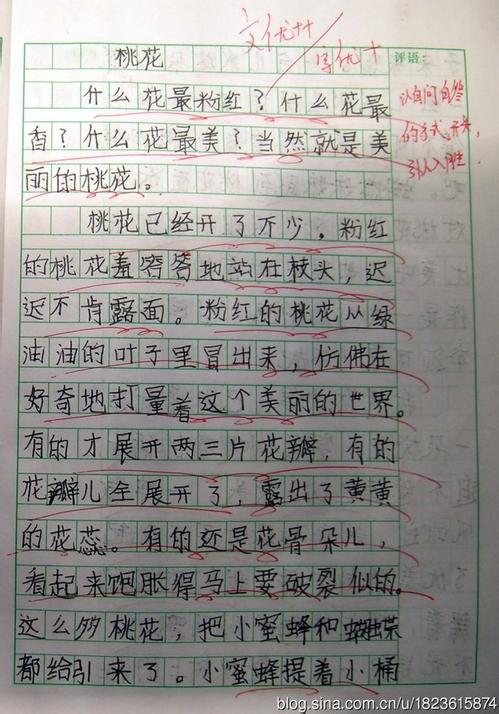 文优++
字优+
桃花
评语：
什么花最粉红？什么花最
香？什么花最美？当然就是美
丽的桃花。
以自问自答
的方式开头，
引人入胜。
桃花已经开了不少。粉红
的桃花羞答答地站在枝头，迟
迟不肯露面。粉红的桃花从绿
油油的叶子里冒出来，仿佛在
好奇地打量着这个美丽的世界。
有的才展开两三片花瓣，有的
花瓣儿全展开了，露出了黄黄
的花蕊。有的还是花骨朵儿，
看起来饱胀得马上要破裂似的。
这么多桃花，把小蜜蜂和蝴蝶
都给引来了。小蜜蜂提着小桶
blog.sina.com.cn/u/1823615874